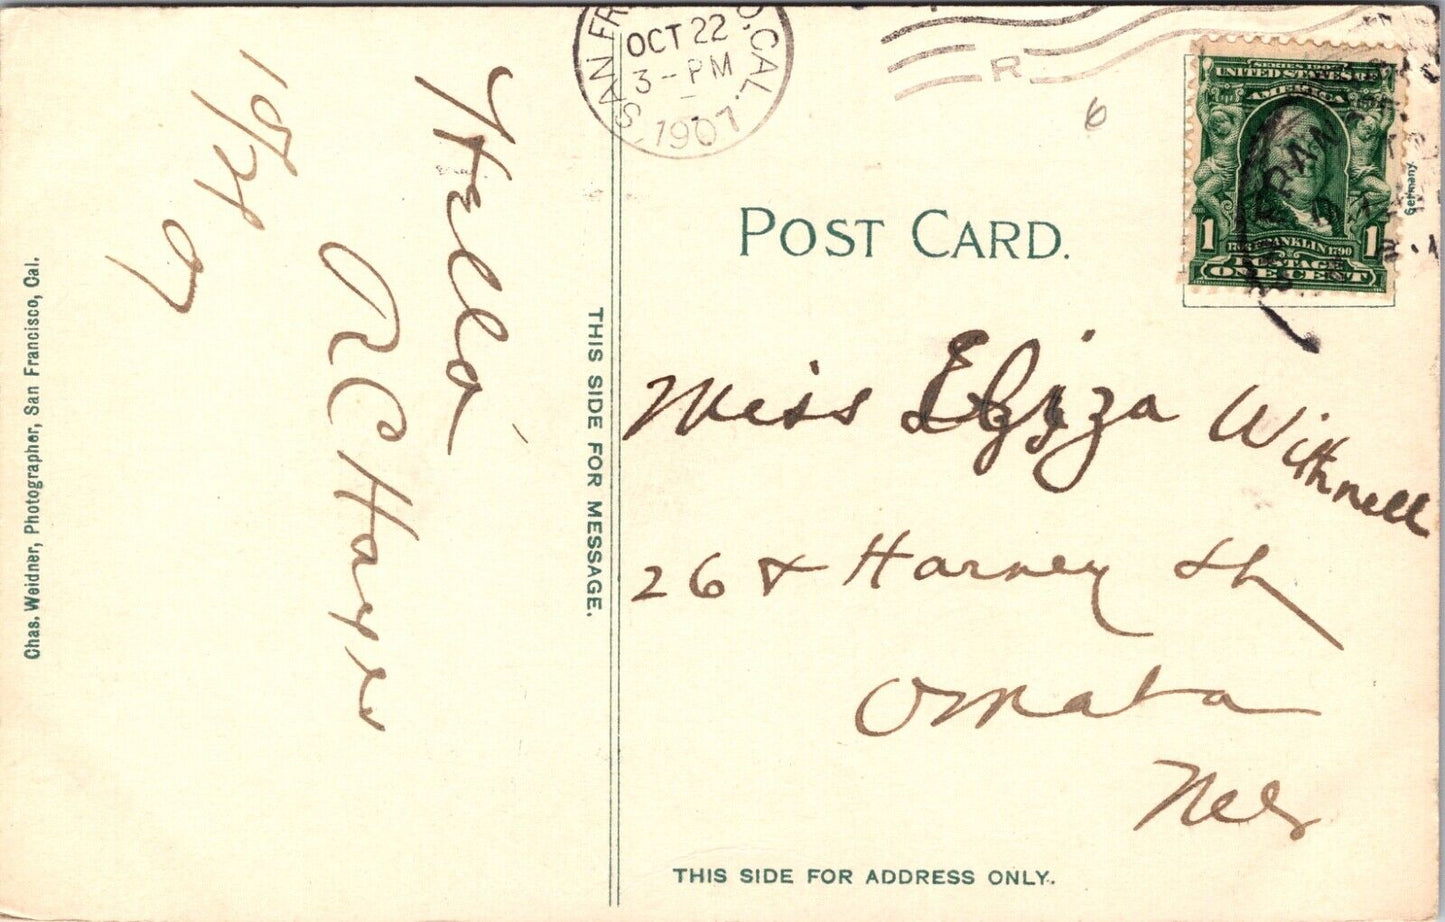 SAN FR
O, CAL.
OCT 22
3-PM
1907
R
6
SERIES 1902
UNITED STATES OF
AMERICA
FRAN
1
1
1706 FRANKLIN 1790
POSTAGE
ONE CENT
Germany.
POST CARD.
Miss Eliza Withnell
26 & Harney St
Omaha
Neb
THIS SIDE FOR ADDRESS ONLY.
THIS SIDE FOR MESSAGE.
Hello
R C Hayes
10/21
07
Chas. Weidner, Photographer, San Francisco, Cal.